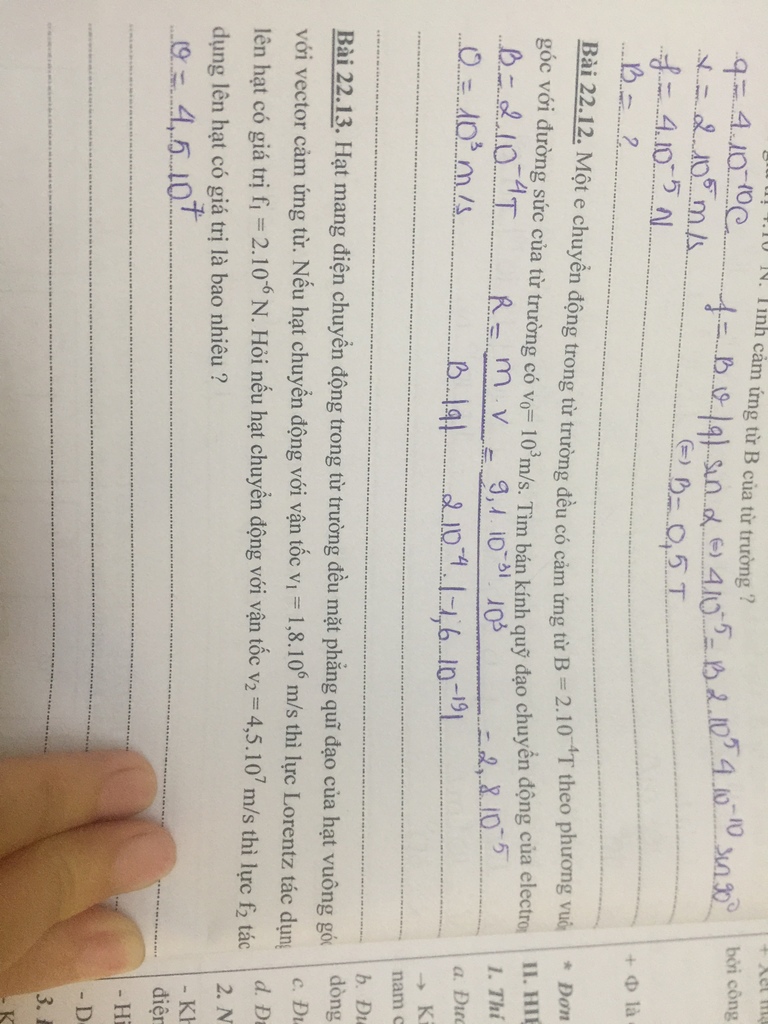 N. Tính cảm ứng từ B của từ trường ?
q = 4.10⁻¹⁰C f = B v |q| sin α (=) 4.10⁻⁵ = B 2.10⁵ 4 10⁻¹⁰ sin 90⁰
v = 2 10⁵ m/s (=) B = 0,5 T
f = 4.10⁻⁵ N
B = ?
Bài 22.12. Một e chuyển động trong từ trường đều có cảm ứng từ B = 2.10⁻⁴T theo phương vuô
góc với đường sức của từ trường có v₀= 10³m/s. Tìm bán kính quỹ đạo chuyển động của electro
B = 2 10⁻⁴T R = m . v = 9,1 10⁻³¹ . 10³ = 2,8 10⁻⁵
v = 10³ m/s B |q| 2 10⁻⁴ . |-1,6 10⁻¹⁹|
Bài 22.13. Hạt mang điện chuyển động trong từ trường đều mặt phẳng quĩ đạo của hạt vuông gó
với vector cảm ứng từ. Nếu hạt chuyển động với vận tốc v₁ = 1,8.10⁶ m/s thì lực Lorentz tác dụn
lên hạt có giá trị f₁ = 2.10⁻⁶ N. Hỏi nếu hạt chuyển động với vận tốc v₂ = 4,5.10⁷ m/s thì lực f₂ tác
dụng lên hạt có giá trị là bao nhiêu ?
v = 4,5 10⁷
+ Xét mạ
bởi công
+ Φ là
* Đơn
II. HI
1. Thí
a. Đưa
→ K
nam c
b. Đư
dòng
c. Đu
d. Đ
2. N
- Kh
điện
- Hi
- D
3.
- K